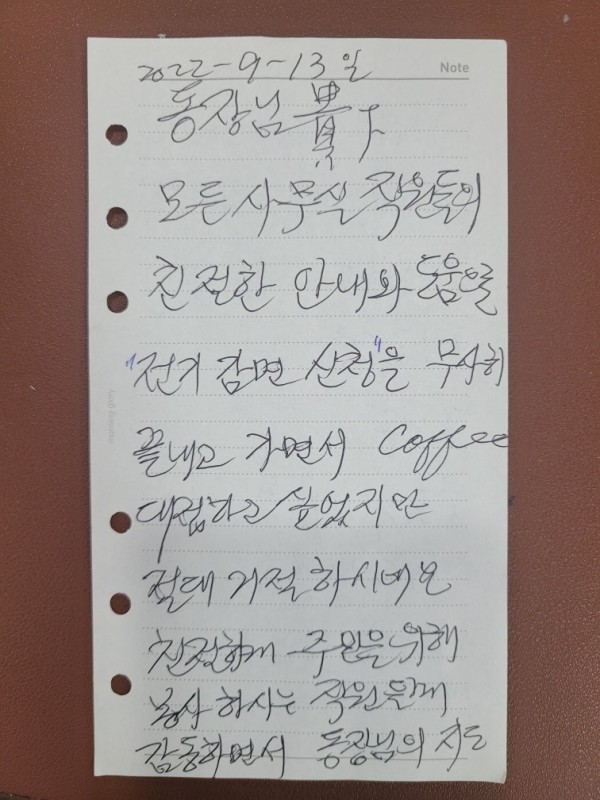 2022-9-13일
Note
동장님 貴下
모든 사무실 직원들의
친절한 안내와 도움으로
"전기 감면 신청"을 무사히
끝내고 가면서 Coffee
대접하고 싶었지만
절대 거절 하시며
친절하게 주민을 위해
봉사 하시는 직원들께
감동하면서 동장님의 지도
morning glory